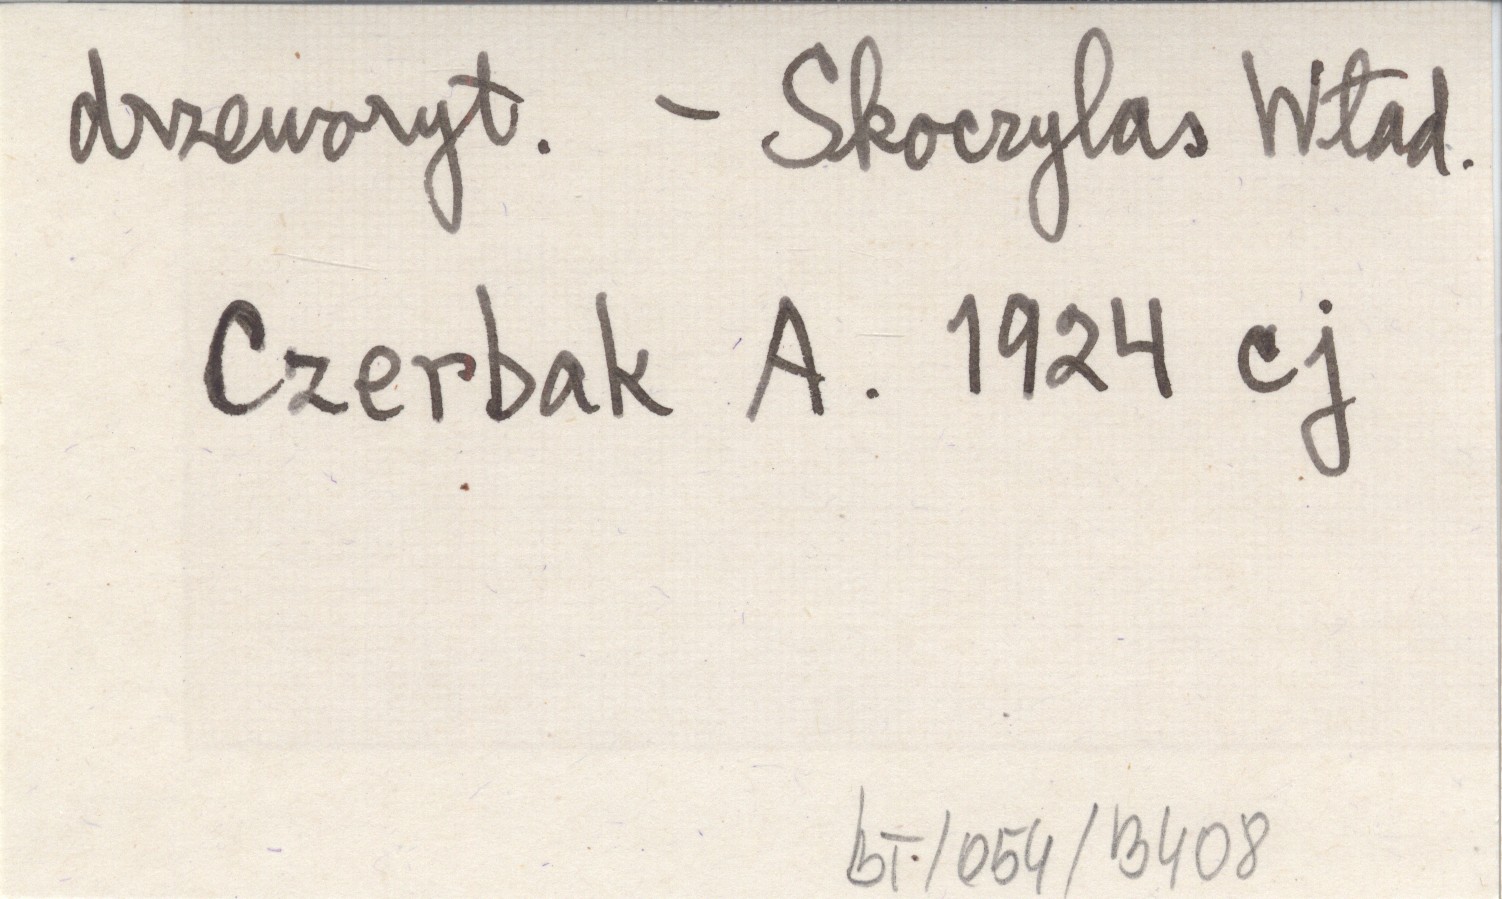 drzeworyt. - Skoczylas Wład.
Czerbak A. 1924 cj
bT./054/B408